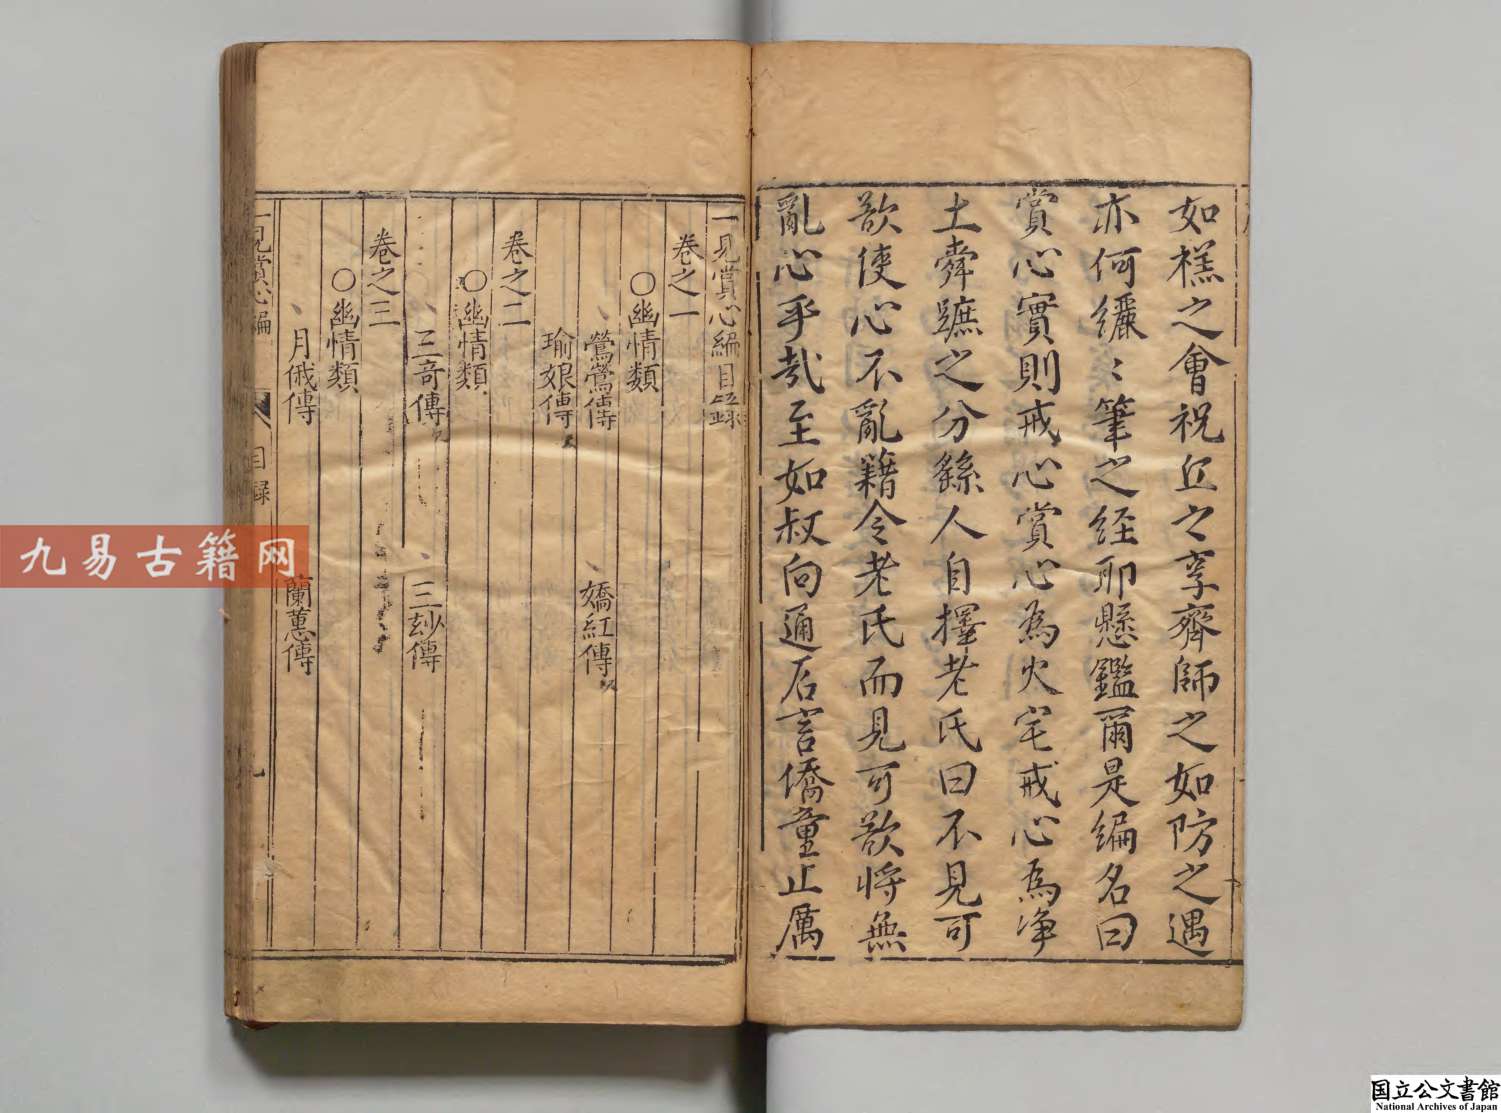 如禚之會祝丘之享齊師之如防之遇
亦何纚〻筆之経耶懸鑑爾是編名曰
賞心實則戒心賞心為火宅戒心為净
土舜蹠之分繇人自擇老氏曰不見可
欲使心不亂籍令老氏而見可欲將無
亂心乎哉至如叔向通后言僑童止厲
一見賞心編目錄
卷之一
○幽情類
鶯鶯傳
嬌紅傳
瑜娘傳
卷之二
○幽情類
三奇傳
三玅傳
卷之三
○幽情類
月俄傳
蘭蕙傳
一見賞心編
目録
九易古籍网
国立公文書館
National Archives of Japan